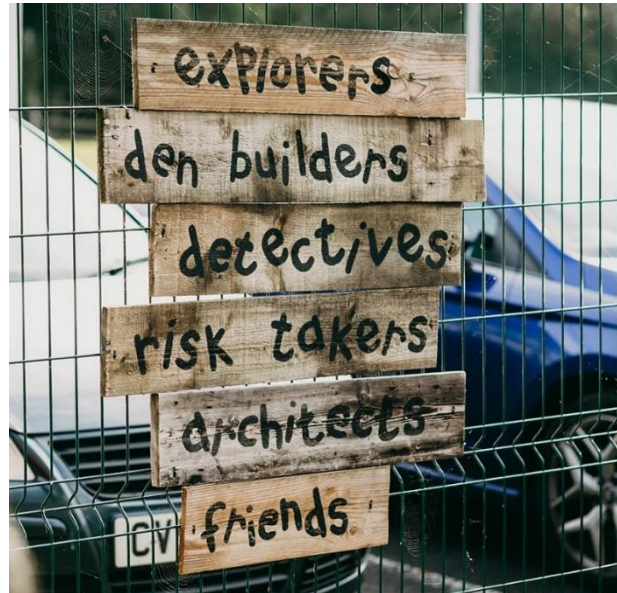 explorers
den builders
detectives
risk takers
architects
friends
CV